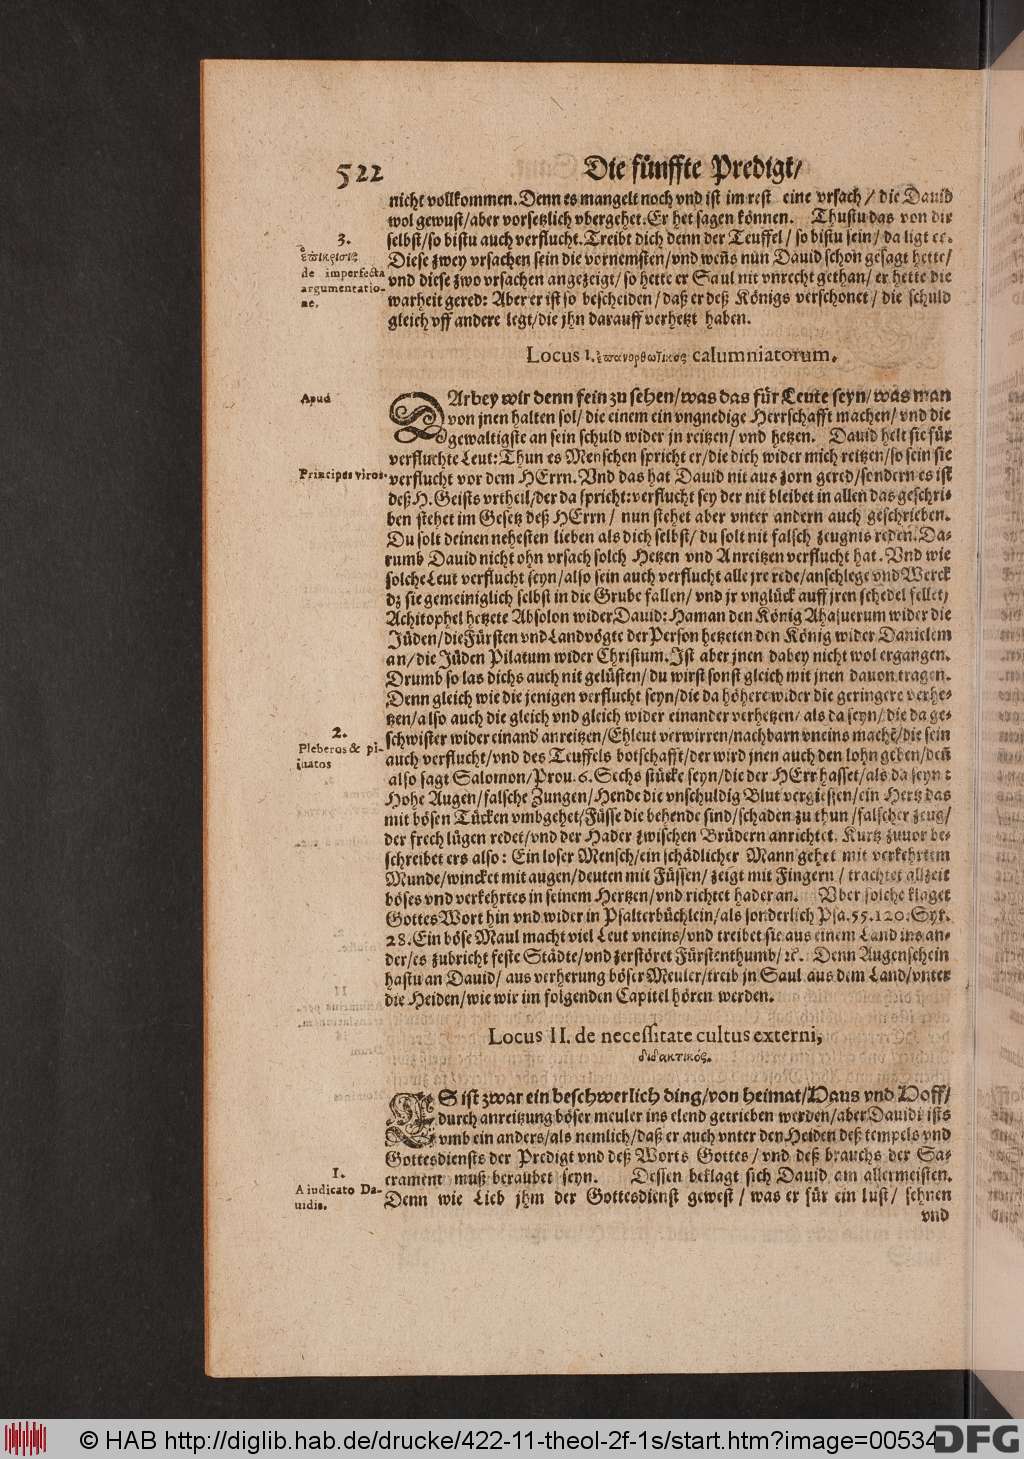 522
Die fünffte Predigt/
nicht vollkommen. Denn es mangelt noch vnd ist im rest eine vrsach/ die Dauid
wol gewust/ aber vorsetzlich vbergehet. Er het sagen können. Thustu das von dir
3.
selbst/ so bistu auch verflucht. Treibt dich denn der Teuffel/ so bistu sein/ da ligt er.
ἐπίκρισις
de imperfecta
argumentatio-
ne.
Diese zwey vrsachen sein die vornemsten/ vnd weñs nun Dauid schon gesagt hette/
vnd diese zwo vrsachen angezeigt/ so hette er Saul nit vnrecht gethan/ er hette die
warheit gered: Aber er ist so bescheiden/ daß er deß Königs verschonet/ die schuld
gleich vff andere legt/ die jhn darauff verhetzt haben.
Locus I. ἐπανορθωτικὸς calumniatorum.
Apud
DArbey wir denn fein zu sehen/ was das für Leute seyn/ was man
von jnen halten sol/ die einem ein vngnedige Herrschafft machen/ vnd die
gewaltigste an sein schuld wider jn reitzen/ vnd hetzen. Dauid helt sie für
verfluchte Leut: Thun es Menschen spricht er/ die dich wider mich reitzen/ so sein sie
Principes viros.
verflucht vor dem HErrn. Vnd das hat Dauid nit aus zorn gered/ sondern es ist
deß H. Geists vrtheil/ der da spricht: verflucht sey der nit bleibet in allen das geschri-
ben stehet im Gesetz deß HErrn/ nun stehet aber vnter andern auch geschrieben.
Du solt deinen nehesten lieben als dich selbst/ du solt nit falsch zeugnis reden. Da-
rumb Dauid nicht ohn vrsach solch Hetzen vnd Anreitzen verflucht hat. Vnd wie
solche Leut verflucht seyn/ also sein auch verflucht alle jre rede/ anschlege vnd Werck
dz sie gemeiniglich selbst in die Grube fallen/ vnd jr vnglück auff jren schedel fellet/
Achitophel hetzete Absolon wider Dauid: Haman den König Ahasuerum wider die
Jüden/ die Fürsten vnd Landvögte der Person hetzeten den König wider Danielem
an/ die Jüden Pilatum wider Christum. Ist aber jnen dabey nicht wol ergangen.
Drumb so las dichs auch nit gelüsten/ du wirst sonst gleich mit jnen dauon tragen.
Denn gleich wie die jenigen verflucht seyn/ die da höhere wider die geringere verhe-
tzen/ also auch die gleich vnd gleich wider einander verhetzen/ als da seyn/ die da ge-
2.
Pleberos & pri-
uatos
schwister wider einand anreitzen/ Ehleut verwirren/ nachbarn vneins machē/ die sein
auch verflucht/ vnd des Teuffels botschafft/ der wird jnen auch den lohn geben/ deñ
also sagt Salomon/ Prou. 6. Sechs stücke seyn/ die der HErr hasset/ als da seyn:
Hohe Augen/ falsche Zungen/ Hende die vnschuldig Blut vergiessen/ ein Hertz das
mit bösen Tücken vmbgehet/ Füsse die behende sind/ schaden zu thun/ falscher zeug/
der frech lügen redet/ vnd der Hader zwischen Brüdern anrichtet. Kurtz zuuor be-
schreibet ers also: Ein loser Mensch/ ein schädlicher Mann gehet mit verkehrtem
Munde/ wincket mit augen/ deuten mit Füssen/ zeigt mit Fingern/ trachtet allzeit
böses vnd verkehrtes in seinem Hertzen/ vnd richtet hader an. Vber solche klaget
Gottes Wort hin vnd wider in Psalterbüchlein/ als sonderlich Psa. 55. 120. Syr.
28. Ein böse Maul macht viel Leut vneins/ vnd treibet sie aus einem Land ins an-
der/ es zubricht feste Städte/ vnd zerstöret Fürstenthumb/ ꝛc. Denn Augenschein
hastu an Dauid/ aus verherung böser Meuler/ treib jn Saul aus dem Land/ vnter
die Heiden/ wie wir im folgenden Capitel hören werden.
Locus II. de necessitate cultus externi,
διδακτικός.
ES ist zwar ein beschwerlich ding/ von heimat/ Haus vnd Hoff/
durch anreitzung böser meuler ins elend getrieben werden/ aber Dauidi ists
vmb ein anders/ als nemlich/ daß er auch vnter den Heiden deß tempels vnd
Gottesdiensts der Predigt vnd deß Worts Gottes/ vnd deß brauchs der Sa-
1.
A iudicato Da-
uidis.
crament muß beraubet seyn. Dessen beklagt sich Dauid am allermeisten.
Denn wie Lieb jhm der Gottesdienst gewest/ was er für ein lust/ sehnen
vnd
© HAB http://diglib.hab.de/drucke/422-11-theol-2f-1s/start.htm?image=00534
DFG